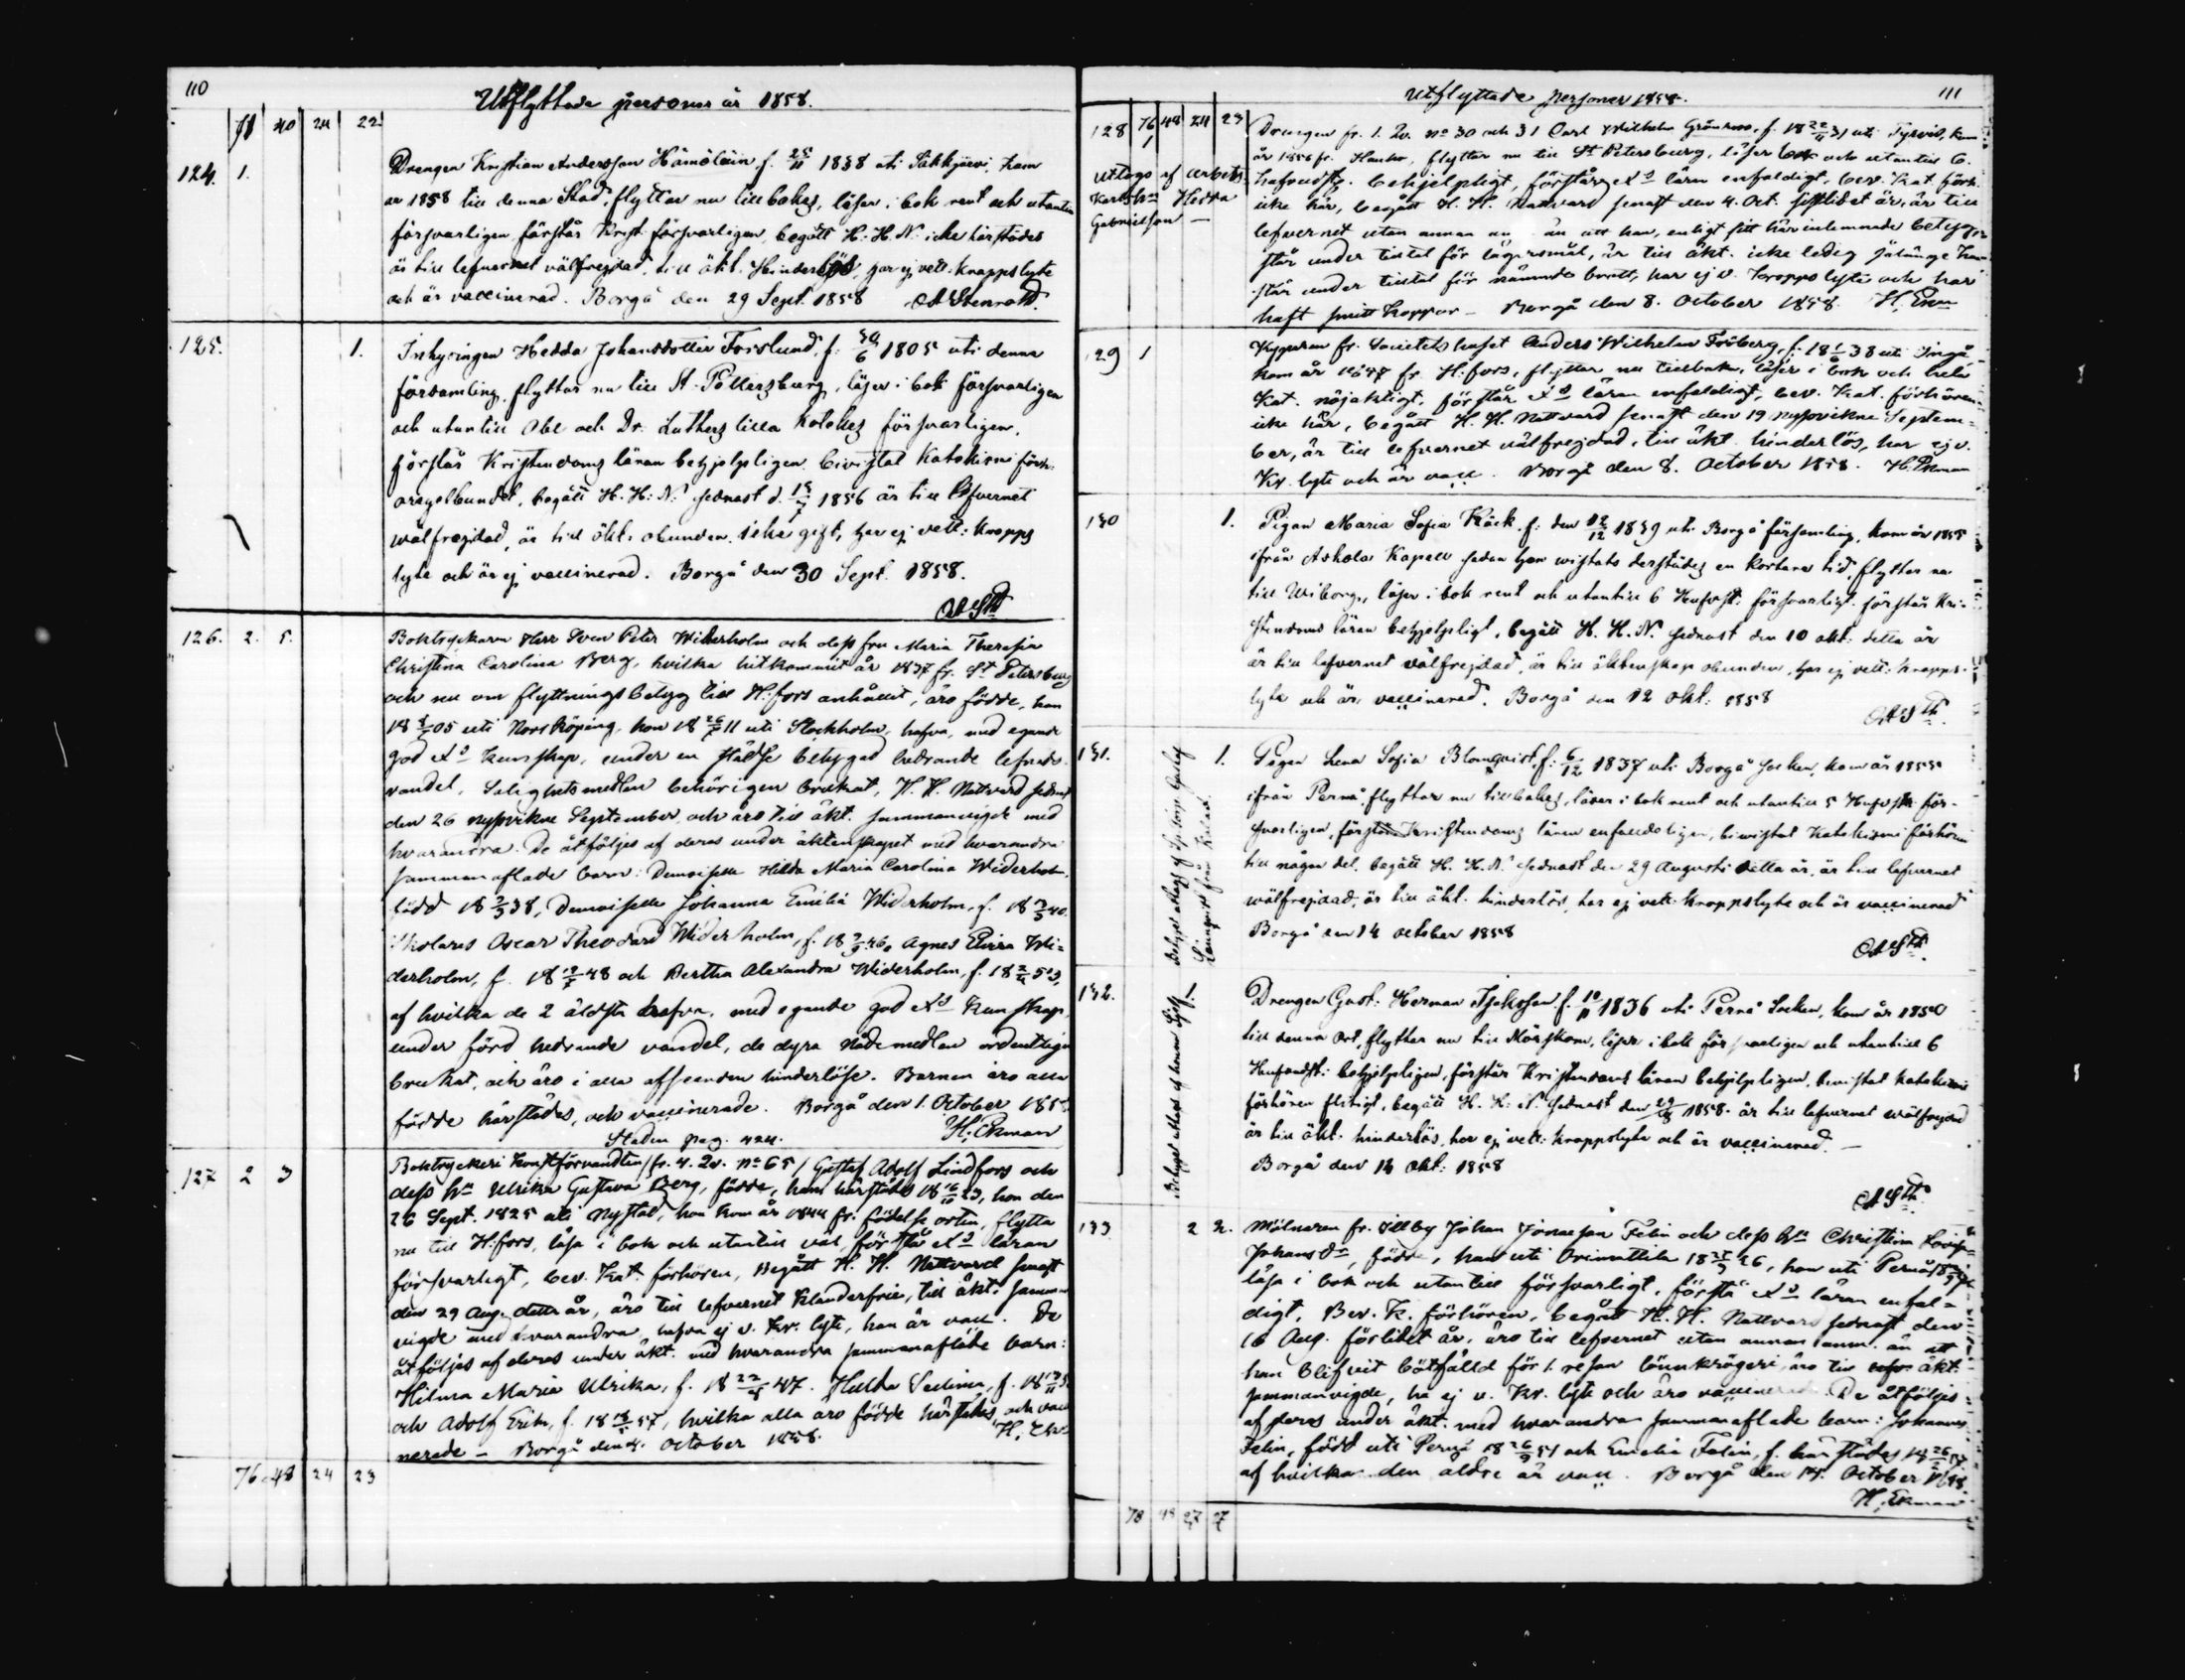 110
Utflyttade personer år 1858.
71 40 24 22
124. 1.
Drengen Kristian Andersson Hämäläin f. 25/11 1838 uti Säkkjärvi, kom
år 1858 till denna Stad, flyttar nu tillbakes, läser i bok rent och utantill
försvarligen förstår Krist. försvarligen, begått H: H. N. icke härstädes
är till lefvernet välfrejdad, till äkt. hinderlös, har ej vett. kroppslyte
och är vaccinerad. Borgå den 29 Sept. 1858
125. 1.
Inhysingen Hedda Johansdotter Forslund, f. 30/6 1805 uti denna
församling, flyttar nu till St. Pettersburg, läser i bok försvarligen
och utantill Abc och Dr. Luthers lilla katekes försvarligen,
förstår Kristendoms läran behjelpligen, bivistat Katekismi förh.
oregelbundet, begått H. H: N. sednast d. 1856 är till lefvernet
wälfrejdad, är till äkt. obunden, icke gift, har ej vett: kropps
lyte och är ej vaccinerad. Borgå den 30 Sept. 1858.
126. 2. 5.
Boktryckaren Herr Sven Peter Widerholm och dess fru Maria Theresia
Christina Carolina Berg, hvilka hitkommit år 1837 fr. St Petersburg
och nu om flyttningsbetyg till H:fors anhållit, äro födde, han
05 uti Norrköping, hon 11 uti Stockholm, hafva, med egande
god kunskap, under en städse betygad hedrande lefnads
vandel, Salighetsmedlen behörigen brukat, H. H. Nattvard sednast
den 26 nyssvikne September, och äro till äkt. sammanvigde med
hvarandra. De åtföljes af deras under äktenskapet med hvarandra
sammanaflade barn: Demoiselle Hilda Maria Carolina Widerholm,
född 18 38, Demoiselle Johanna Emilia Widerholm, f. 18 40.
Oscar Theodard Widerholm, f. 18 46, Agnes Elvira Wi-
derholm, f. 18 48 och Bertha Alexandra Widerholm, f. 18 53,
af hvilka de 2 äldsta hafva, med egande god kunskap,
under förd hedrande vandel, de dyra nådemedlen ordentligen
brukat, och äro i alla afseenden hinderlöse. Barnen äro alla
födde härstädes, och vaccinerade. Borgå den 1. October 1858
H. Ekman
Staden pag. 424.
127 2 3
Boktryckeri Konstförvandten / fr. 4. Qv. No 65 / Gustaf Adolf Lindfors och
dess Hu Ulrika Gustava Berg, födde, han härstädes 18 16/10 23, hon den
26 Sept. 1825 uti Nystad, hon kom år 1844 fr. födelse orten, flytta
nu till H:fors, läsa i bok och utantill väl, förstå läran
försvarligt, bev. Kat. förhören, Begått H. H. Nattvard senast
den 29 Aug. detta år, äro till lefvernet klanderfrie, till äkt. samman
vigde med hvarandra, hafva ej v. kr: lyte, han är vacc. De
åtföljes af deras under äkt. med hvarandra sammanaflade barn:
Hilma Maria Ulrika, f. 18 22 47. Hulda f. 18
och Adolf Erik, f. 18 57, hvilka alla äro födde härstädes och vacci
nerade – Borgå den 4. October 1858.
76 48 24 23
Utflyttade personer 1858.
111
128 76 48 24 23
1
Drengen fr. 1. Qv. No 30 och 31 Carl Wilhelm Grönroos, f. 18 22 31 uti Tyrvis, kom
år 1856 fr. Hauho, flyttar nu till St Petersburg, läser bok och utantill 6.
hufvudst. behjelpligt, förstår läran enfaldigt, bev. Kat. förh.
icke här, begått H. H. Nattvard senast den 4. Oct. sistlidet år, är till
lefvernet utan annan an än att han, enligt sitt här inlemnade betyg,
står under tiltal för lägersmål, är till äkt. icke ledig sålänge han
står under tiltal för nämnde brott, har ej v. kroppslyte och har
haft smittkoppor – Borgå den 8. October 1858. H. Ekm
uttags af arbets.
Karls Hu Hedda
Gabrielson –
129 1
Kyparen fr. Societetshuset Anders Wilhelm Fröberg, f. 18 38 uti Ingå
kom år 1847 fr. H:fors, flyttar nu tillbaka, läser i bok och hela
Kat. nöjaktigt, förstår läran enfaldigt, bev. Kat. förhören
icke här, begått H. H. Nattvard senast den 19 nyssvikne Septem-
ber, är till lefvernet välfrejdad, till äkt. hinderlös, har ej v.
Kr. lyte och är vacc. Borgå den 8. October 1858. H. Ekman
130 1.
Pigan Maria Sofia Käck f. den 12/12 1839 uti Borgå församling, kom år 1855
ifrån Askola Kapell sedan hon wistats derstädes en kortare tid, flyttar nu
till Wiborg, läser i bok rent och utantill 6 Hufvst. försvarligt förstår Kri-
stendoms läran behjelpligt, begått H. H. N. sednast den 10 okt. detta år
är till lefvernet välfrejdad, är till äktenskap obunden, har ej vett: kropps-
lyte och är vaccinerad. Borgå den 12 okt. 1858
131. 1.
Pigan Lena Sofia Blomqvist, f. 6/12 1837 uti Borgå Socken, kom år 1855
ifrån Pernå flyttar nu tillbakes, läser i bok rent och utantill 5 Hufvst för-
svarligen, förstår Kristendoms läran enfaldeligen, bivistat Katekismi förhören
till någon del, begått H. H. N. sednast den 29 Augusti detta år, är till lefvernet
wälfrejdad, är till äkt. hinderlös, har ej vett. kroppslyte och är vaccinerad
Borgå den 14 october 1858
132. 1.
Drengen Gust. Herman Isaksson f. 10/11 1836 uti Pernå Socken, kom år 1850
till denna Ort, flyttar nu till Mörskom, läser i bok försvarligen och utantill 6
Hufvudst: behjelpligen, förstår Kristendoms läran behjelpligen, bevistat katekismi
förhören flitigt, begått H. H: N. sednast den 29/8 1858. är till lefvernet wälfrejdad
är till äkt. hinderlös, har ej vett: kroppslyte och är vaccinerad. –
Borgå den 14 okt: 1858
Betyget uttags af honom sjelf.
133 2 2.
Mölnaren fr. Illby Johan Jonasson Felin och dess Hu Christina Lovisa
Johansdr, födde, han uti Orimattila 18 26, hon uti Pernå
läsa i bok och utantill försvarligt, förstå läran enfal-
digt, Bev. K. förhören, begått H. H. Nattvard sednast den
16 Aug. förlidet år, äro till lefvernet utan annan anm. än att
han blifvit bötfälld för 1. resan lönnkrögeri, äro till äkt.
sammanvigde, ha ej v. kr. lyte och äro vaccinerade. De åtföljes
af deras under äkt. med hvarandra sammanaflade barn: Johannes
Felin, född uti Pernå 18 26/9 51 och Emelia Felin, f. härstädes
af hvilka den äldre är vacc. Borgå den 14. October 1858.
H. Ekman
78 49 27 27